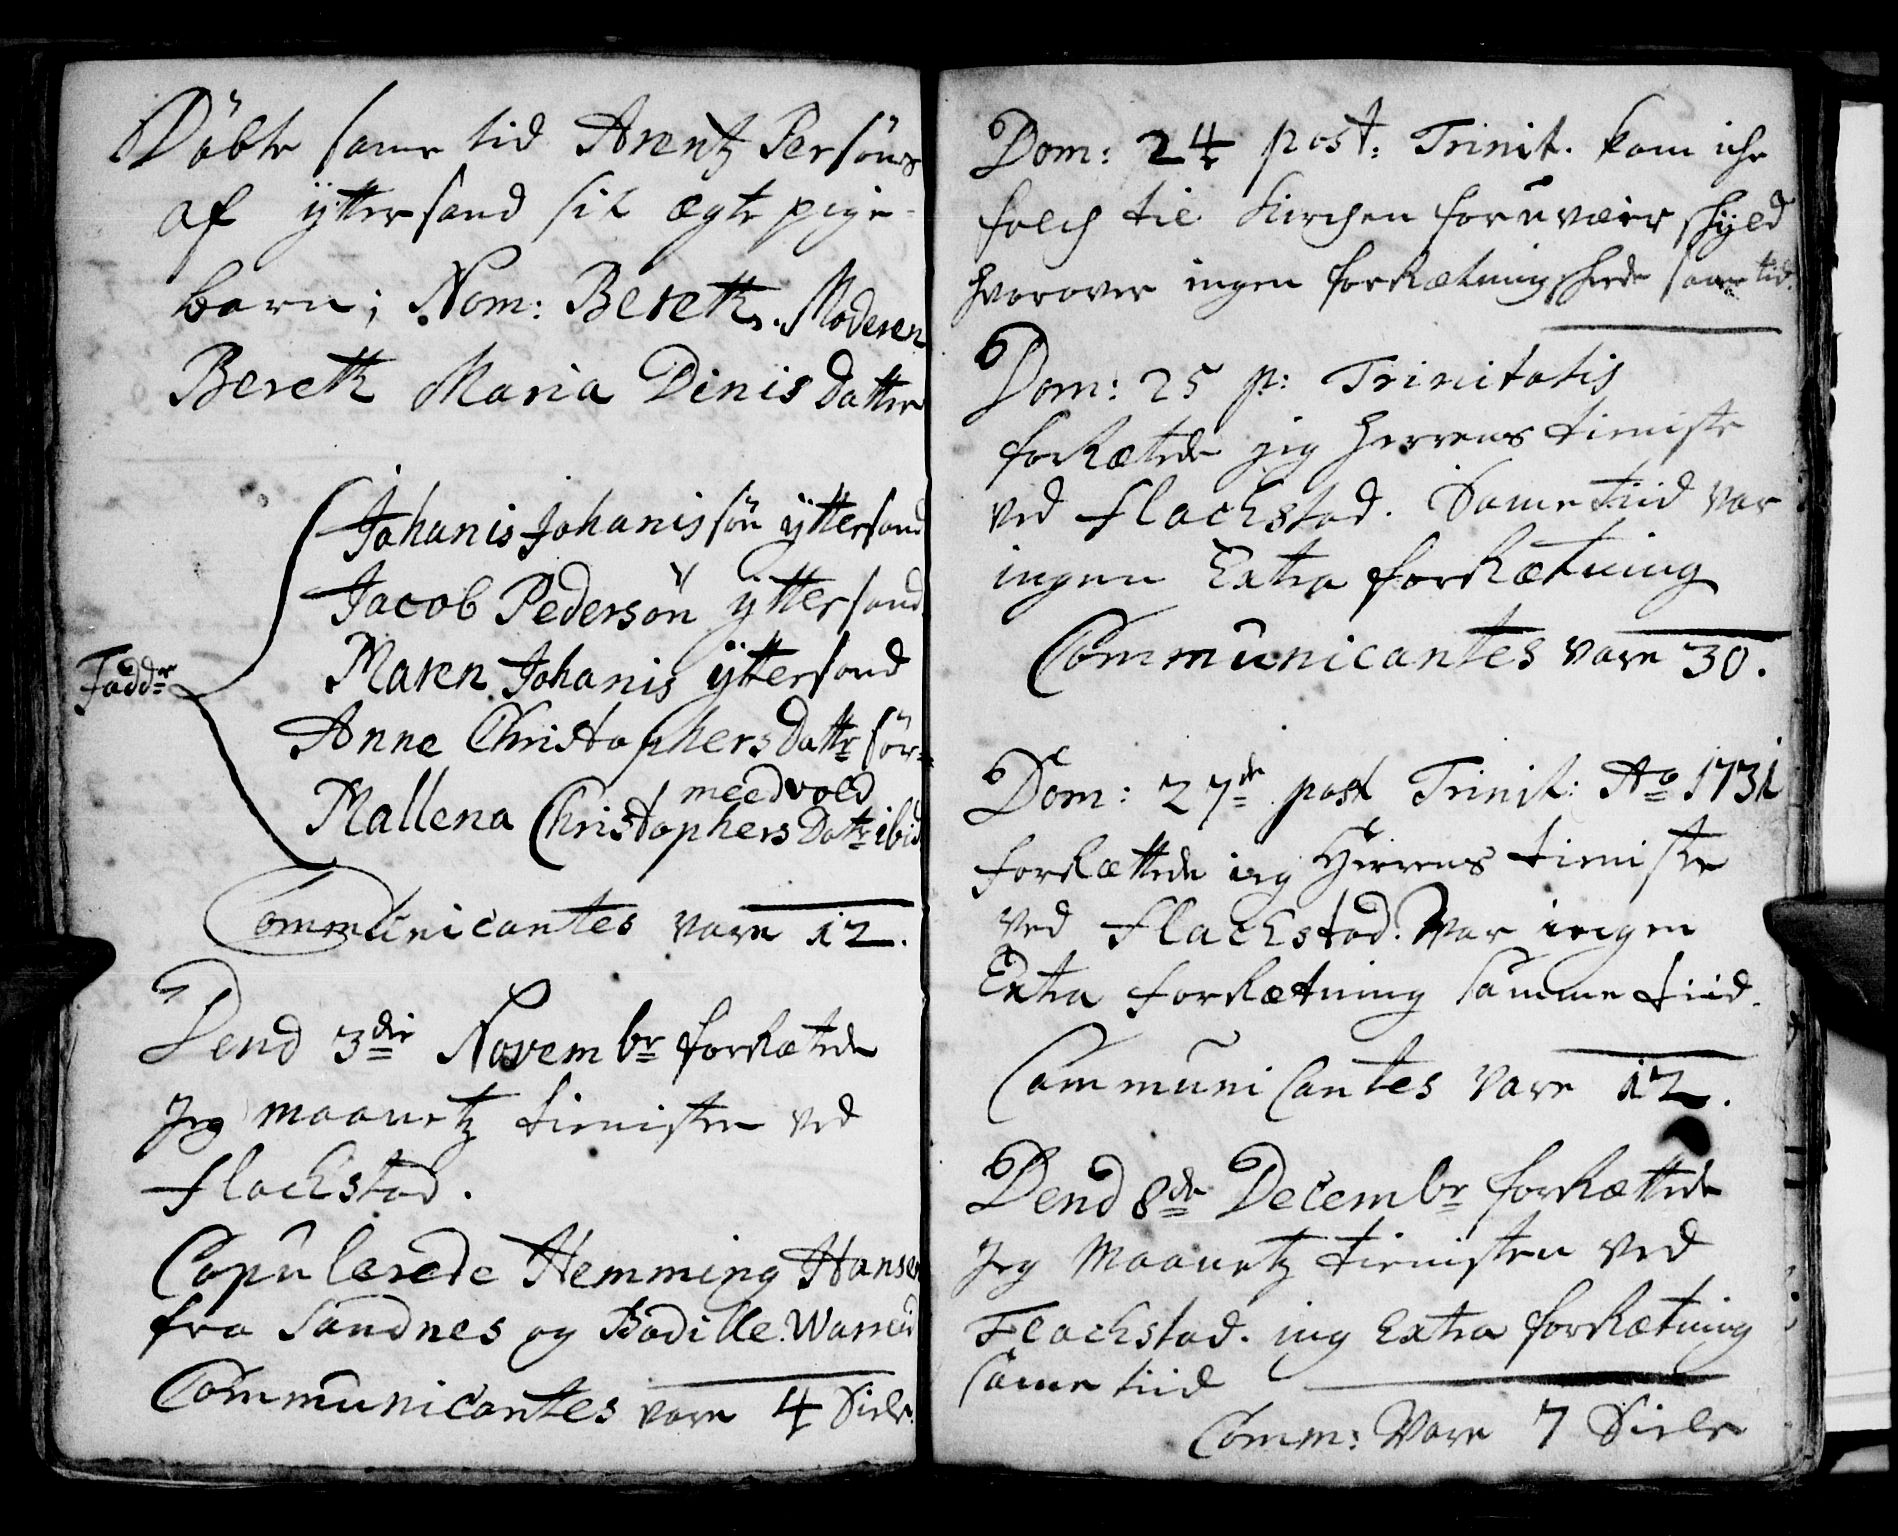 Döbte same tid Arentz Persöns
af ÿttersand sit ægte pige-
barn; Nom: Bereth. Moderen
Bereth Maria Dinis datter
Johanis Johanissön ÿttersand
Jacob Pedersön ÿttersand
Fadd:r
Maren Johanis ÿttersand
Anne Christophers Datt:r sör-
meedvold
Mallena Christophers Datt:r ibid
Communicantes vare 12.
Dend 3die Novembr forRætede
Jeg maanetz tienisten ved
Flachstad.
Copulerede Hemming Hansen
fra Sandnes og Bodille
Communicantes vare 4 Siele.
Dom: 24 post: Trinit. kom iche
folch til Kirchen for uvæirs skÿld
hvorover ingen forRætning skede same tid.
Dom: 25 p: Trinitatis
forRætede jeg Herrens tieniste
ved Flachstad. Same tiid var
ingen Extra forRætning
Communicantes vare 30.
Dom: 27de post Trinit: Ao 1731
forRættede ieg Herrens tieniste
ved Flachstad. War ingen
Extra forRætning samme tiid.
Communicantes vare 12.
Dend 8de Decembr forRættede
Jeg Maanetz tienisten ved
Flachstad. ing Extra forRætning
same tiid
Comm: Vare 7 Siele